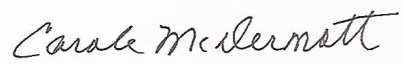 Carole McDermott